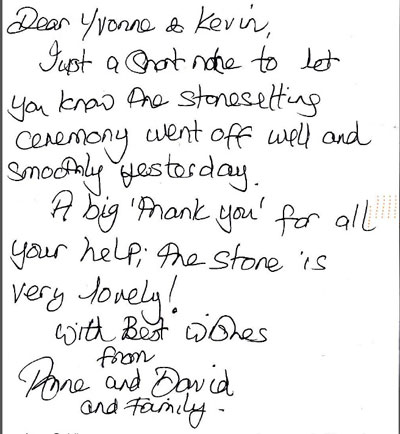 Dear Yvonne & Kevin,
Just a short note to let
you know the stonesetting
ceremony went off well and
smoothly yesterday.
A big 'thank you' for all
your help; the stone is
very lovely!
With Best Wishes
from
Anne and David
and Family.